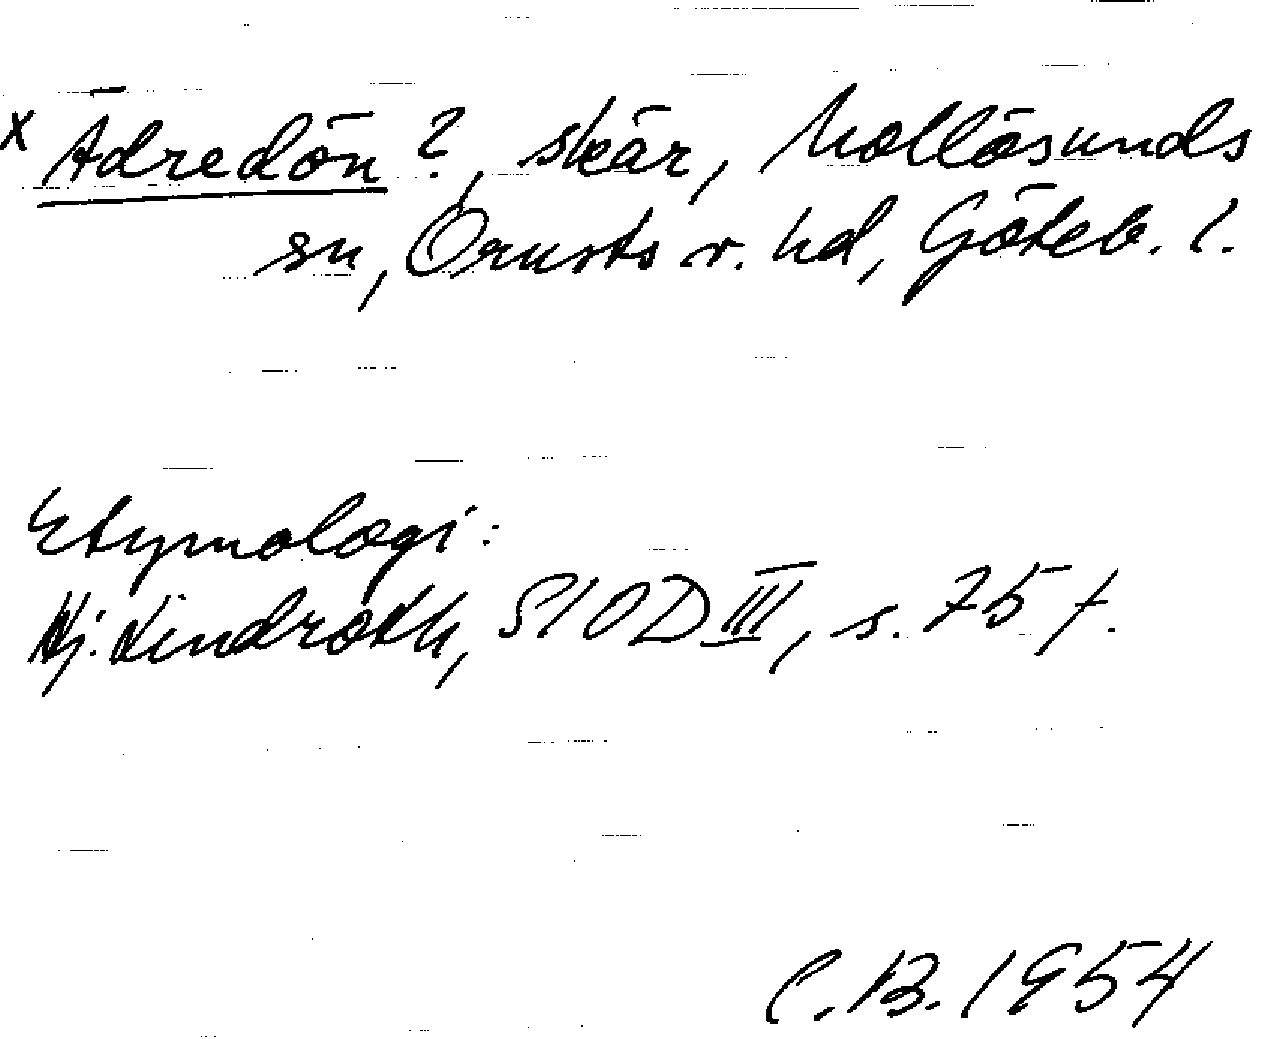 x Ädredön ?, skär, Mollösunds
sn, Orusts v. hd, Göteb. l.
Etymologi:
Hj. Lindroth, SIOD III, s. 75 f.
C.B. 1954